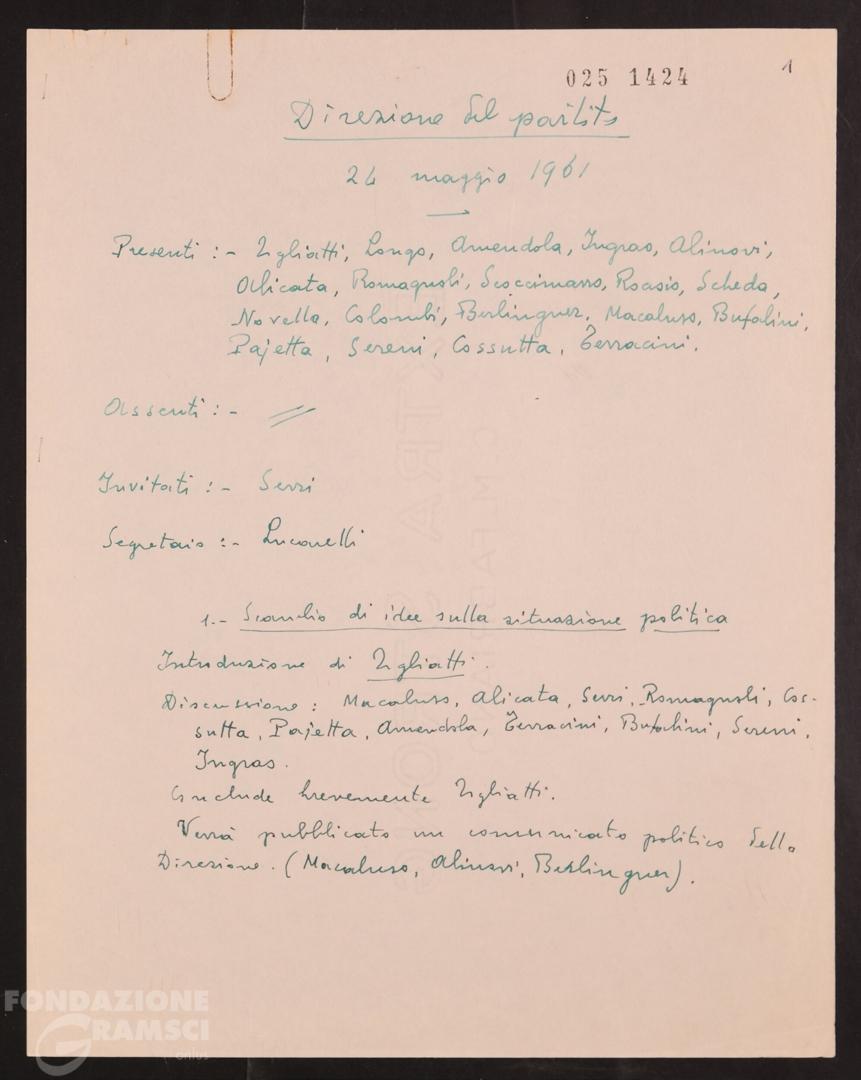 025 1424
1
Direzione del partito
24 maggio 1961
Presenti :- Togliatti, Longo, Amendola, Ingrao, Alinovi,
Alicata, Romagnoli, Scoccimarro, Roasio, Scheda,
Novella, Colombi, Berlinguer, Macaluso, Bufalini,
Pajetta, Sereni, Cossutta, Terracini.
Assenti :- //
Invitati :- Serri
Segretario :- Luconelli
1.- Scambio di idee sulla situazione politica
Introduzione di Togliatti.
Discussione : Macaluso, Alicata, Serri, Romagnoli, Cos-
sutta, Pajetta, Amendola, Terracini, Bufalini, Sereni,
Ingrao.
Conclude brevemente Togliatti.
Verrà pubblicato un comunicato politico della
Direzione. (Macaluso, Alinovi, Berlinguer).
FONDAZIONE
GRAMSCI
onlus